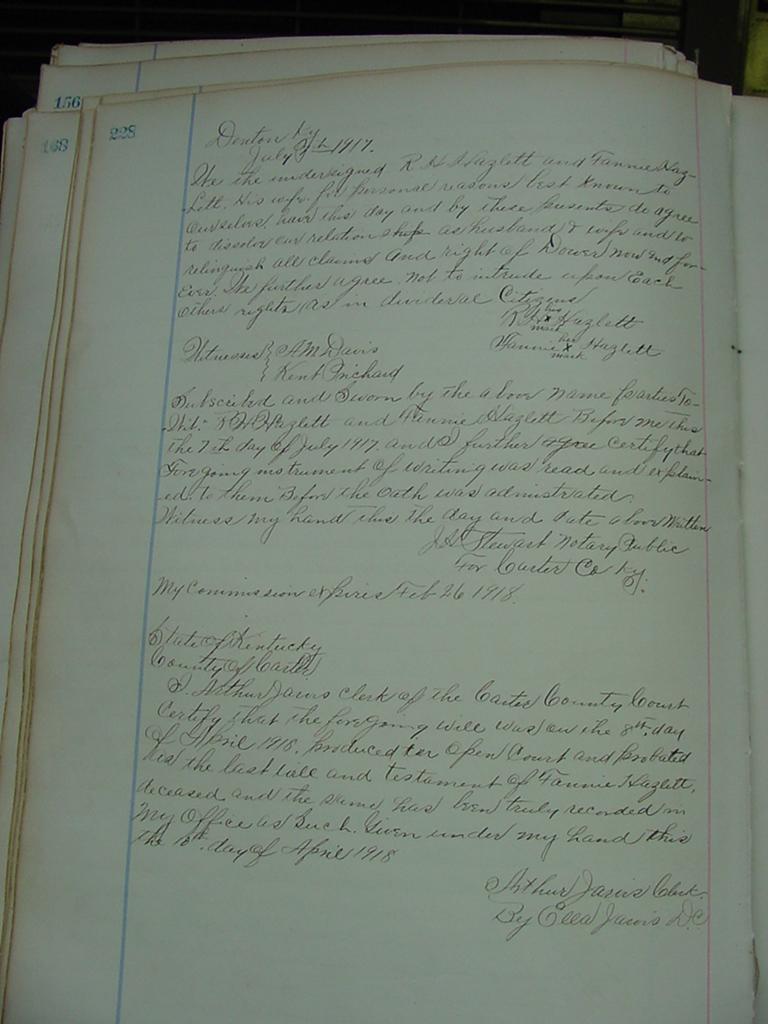 156
168
228
Denton Ky
July 7th 1917.
We the undersigned R H Hazlett and Fannie Haz-
lett, His wife, for personal reasons best known to
ourselves, have this day and by these presents do agree
to dissolve our relation ship as husband & wife and to
relinquish all claims and right of Dower, now and for-
Ever. We further agree, not to intrude upon Each
others rights, as in dividual Citizens
R H his x mark Hazlett
Fannie her x mark Hazlett
Witnesses { A M Davis
{ Kent Prichard
Subscribed and Sworn by the above name parties To-
Wit: R H Hazlett and Fannie Hazlett Before me this
the 7th day of July 1917. and I further certify that
Foregoing instrument of writing was read and explain-
ed to them Before the Oath was administrated.
Witness my hand this the day and date above Written
Stewart Notary Public
For Carter Co Ky.
My Commission expires Feb 26 1918.
State of Kentucky
County of Carter
I, Arthur Jarvis clerk of the Carter County Court
Certify that the foregoing will was on the 8th day
of April 1918, produced in Open Court and probated
as the last will and testament of Fannie Hazlett,
deceased and the same has been truly recorded in
My Office as Such. Given under my hand this
the day of April 1918
Arthur Jarvis Clerk.
By Ella Jarvis D.C